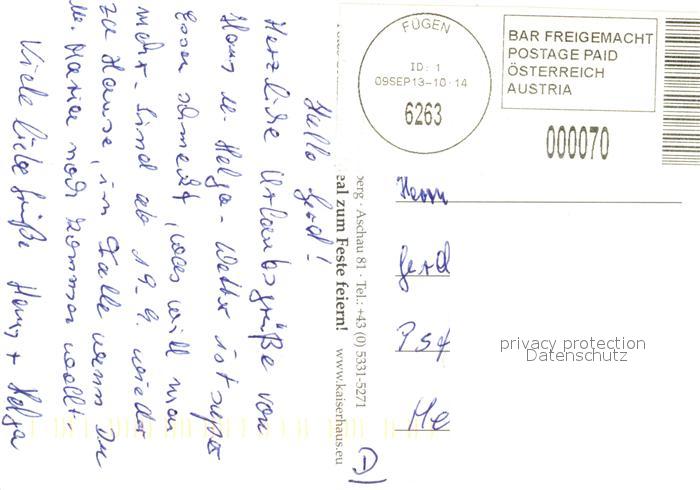 Hallo Gerd!
Herzliche Urlaubsgrüße von
Hans u. Helga - Wetter ist super
Essen schmeckt, was will man
mehr. Sind ab 19.9. wieder
zu Hause, im Falle wenn Du
u. Maria noch kommen wollt.
Viele liebe Grüße Hans + Helga
berg · Aschau 81 · Tel.: +43 (0) 5331-5271
eal zum Feste feiern! www.kaiserhaus.eu
FÜGEN
ID: 1
09SEP13-10·14
6263
BAR FREIGEMACHT
POSTAGE PAID
ÖSTERREICH
AUSTRIA
000070
Herrn
Gerd
Psf
He
D
privacy protection
Datenschutz